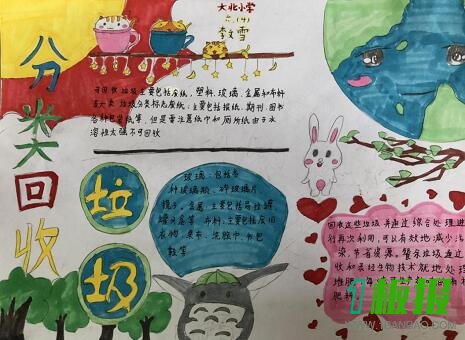 大北小学
六.(4)
分类回收
垃圾
可回收垃圾主要包括废纸,塑料,玻璃,金属和布料
五大类 垃圾分类标志废纸:主要包括报纸、期刊、图书
各种包装纸等,但是要注意纸巾和厕所纸由于水
溶性太强不可回收
玻璃:包括各
种玻璃瓶、碎玻璃片
镜子,金属:主要包括易拉罐
罐头盒等 布料,主要包括废旧
衣物,桌布、洗脸巾、书包
鞋等
回收这些垃圾 并通过综合处理进
行再次利用,可以有效地减少污
染,节省资源,
收和
堆肥
肥料